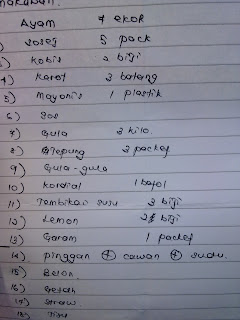 makanan.
Ayam 7 ekor
2) sosej 5 pack
3) Kobis 2 biji
4) Karot 3 batang
5) Mayonis 1 plastik
6) Sos
7) Gula 2 kilo.
8) Tepung 2 packet
9) Gula-gula
10) Kordial 1 botol
11) Tembikai susu 3 biji
12) Lemon 2 biji
13) Garam 1 packet
14) pinggan + cawan + sudu.
15) Belon
16) Getah
17) Straw
18) Tisu